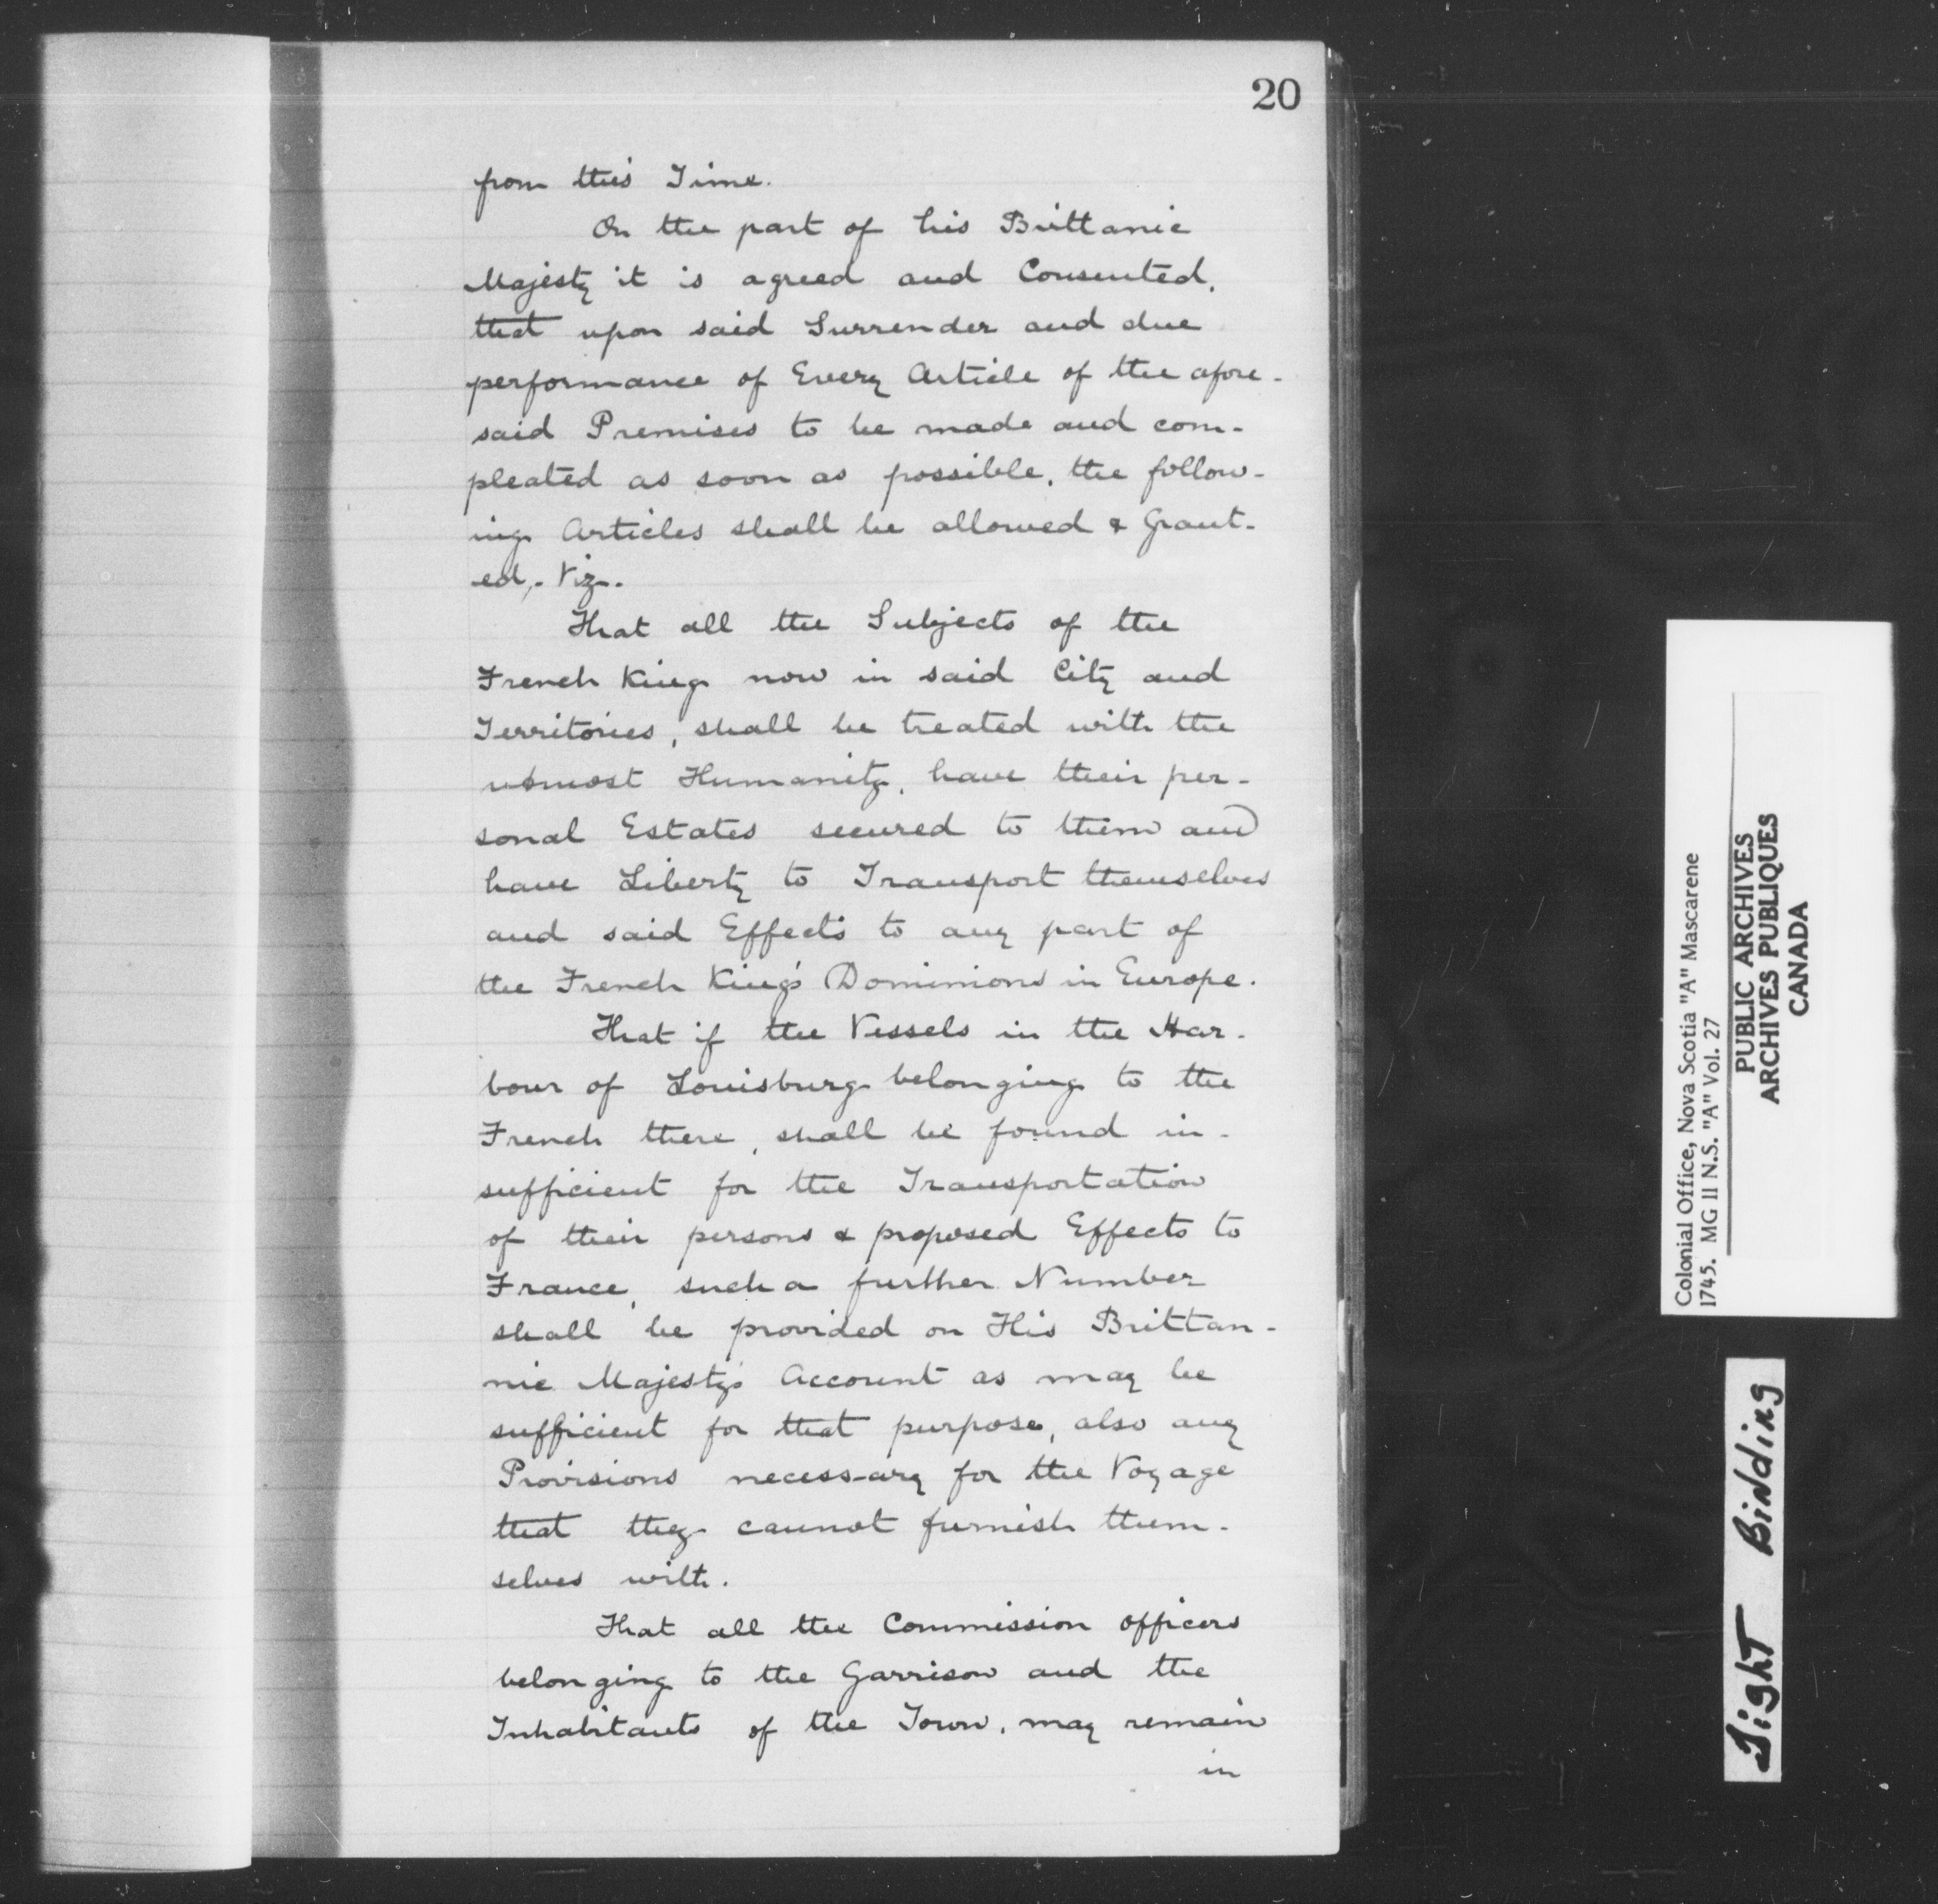 20
from this Time.
On the part of his Brittanic
Majesty it is agreed and Consented,
that upon said Surrender and due
performance of Every Article of the afore-
said Premises to be made and com-
pleated as soon as possible, the follow-
ing Articles shall be allowed & Grant-
ed,. Viz.
That all the Subjects of the
French King now in said City and
Territories, shall be treated with the
utmost Humanity, have their per-
sonal Estates secured to them and
have Liberty to Transport themselves
and said Effects to any part of
the French King's Dominions in Europe.
That if the Vessels in the Har-
bour of Louisburg belonging to the
French there, shall be found in-
sufficient for the Transportation
of their persons & proposed Effects to
France, such a further Number
shall be provided on His Brittan-
nic Majesty's Account as may be
sufficient for that purpose, also any
Provisions necessary for the Voyage
that they cannot furnish them-
selves with.
That all the Commission officers
belonging to the Garrison and the
Inhabitants of the Town, may remain
in
Colonial Office, Nova Scotia "A" Mascarene
1745. MG 11 N.S. "A" Vol. 27
PUBLIC ARCHIVES
ARCHIVES PUBLIQUES
CANADA
Tight Binding